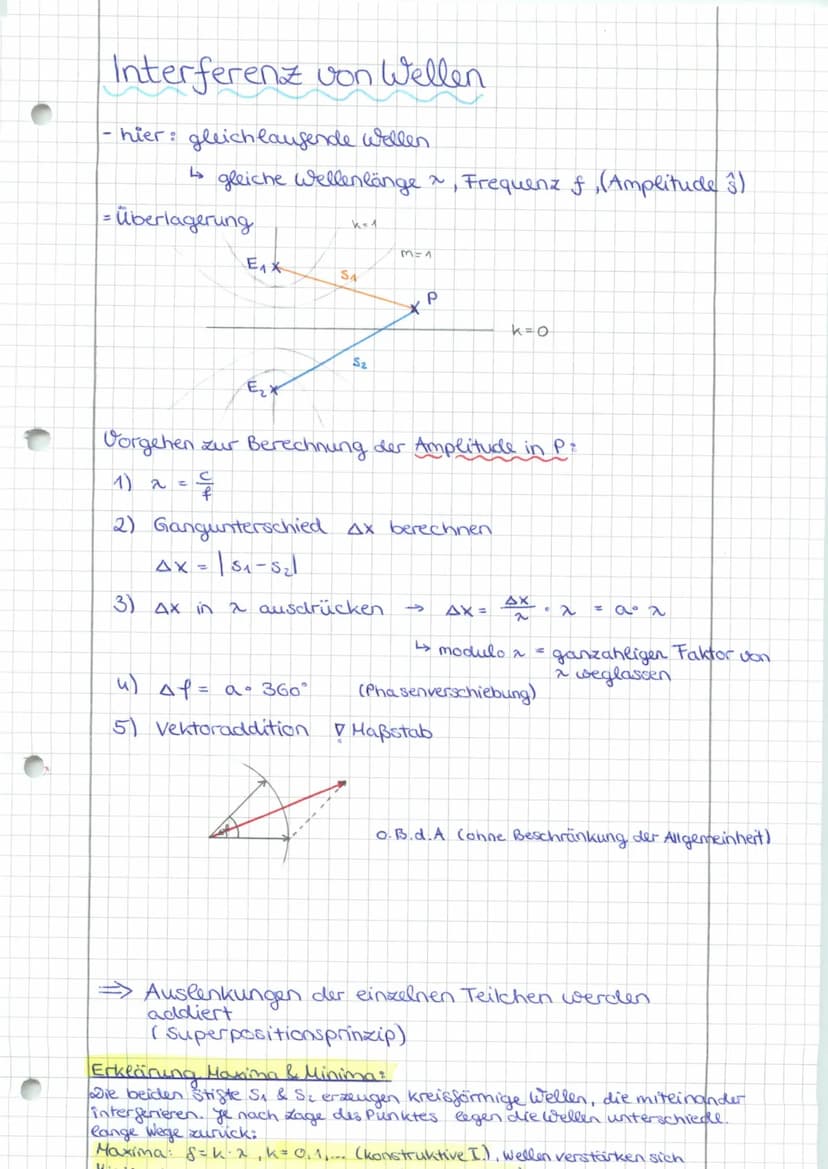 Interferenz von Wellen
- hier: gleichlaufende Wellen
↳ gleiche Wellenlänge λ, Frequenz f, (Amplitude ŝ)
= Überlagerung
k=1
m=1
E₁
S₁
P
k=0
S₂
E₂
Vorgehen zur Berechnung der Amplitude in P:
1) λ = c/f
2) Gangunterschied Δx berechnen
Δx = |S₁-S₂|
3) Δx in λ ausdrücken → Δx = Δx/λ · λ = a · λ
↳ modulo λ = ganzzahligen Faktor von
λ weglassen
4) Δφ = a · 360° (Phasenverschiebung)
5) Vektoraddition ! Maßstab
o.B.d.A (ohne Beschränkung der Allgemeinheit)
⇒ Auslenkungen der einzelnen Teilchen werden
addiert
(Superpositionsprinzip)
Erklärung Maxima & Minima:
Die beiden Stifte S₁ & S₂ erzeugen kreisförmige Wellen, die miteinander
interferieren. Je nach Lage des Punktes legen die Wellen unterschiedl.
lange Wege zurück:
Maxima: δ = k · λ, k = 0,1,... (konstruktive I.), Wellen verstärken sich